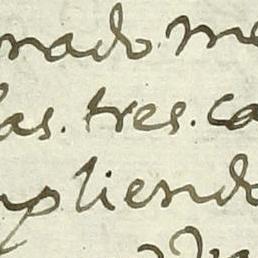 nado me
las. tres. ca
npliendo